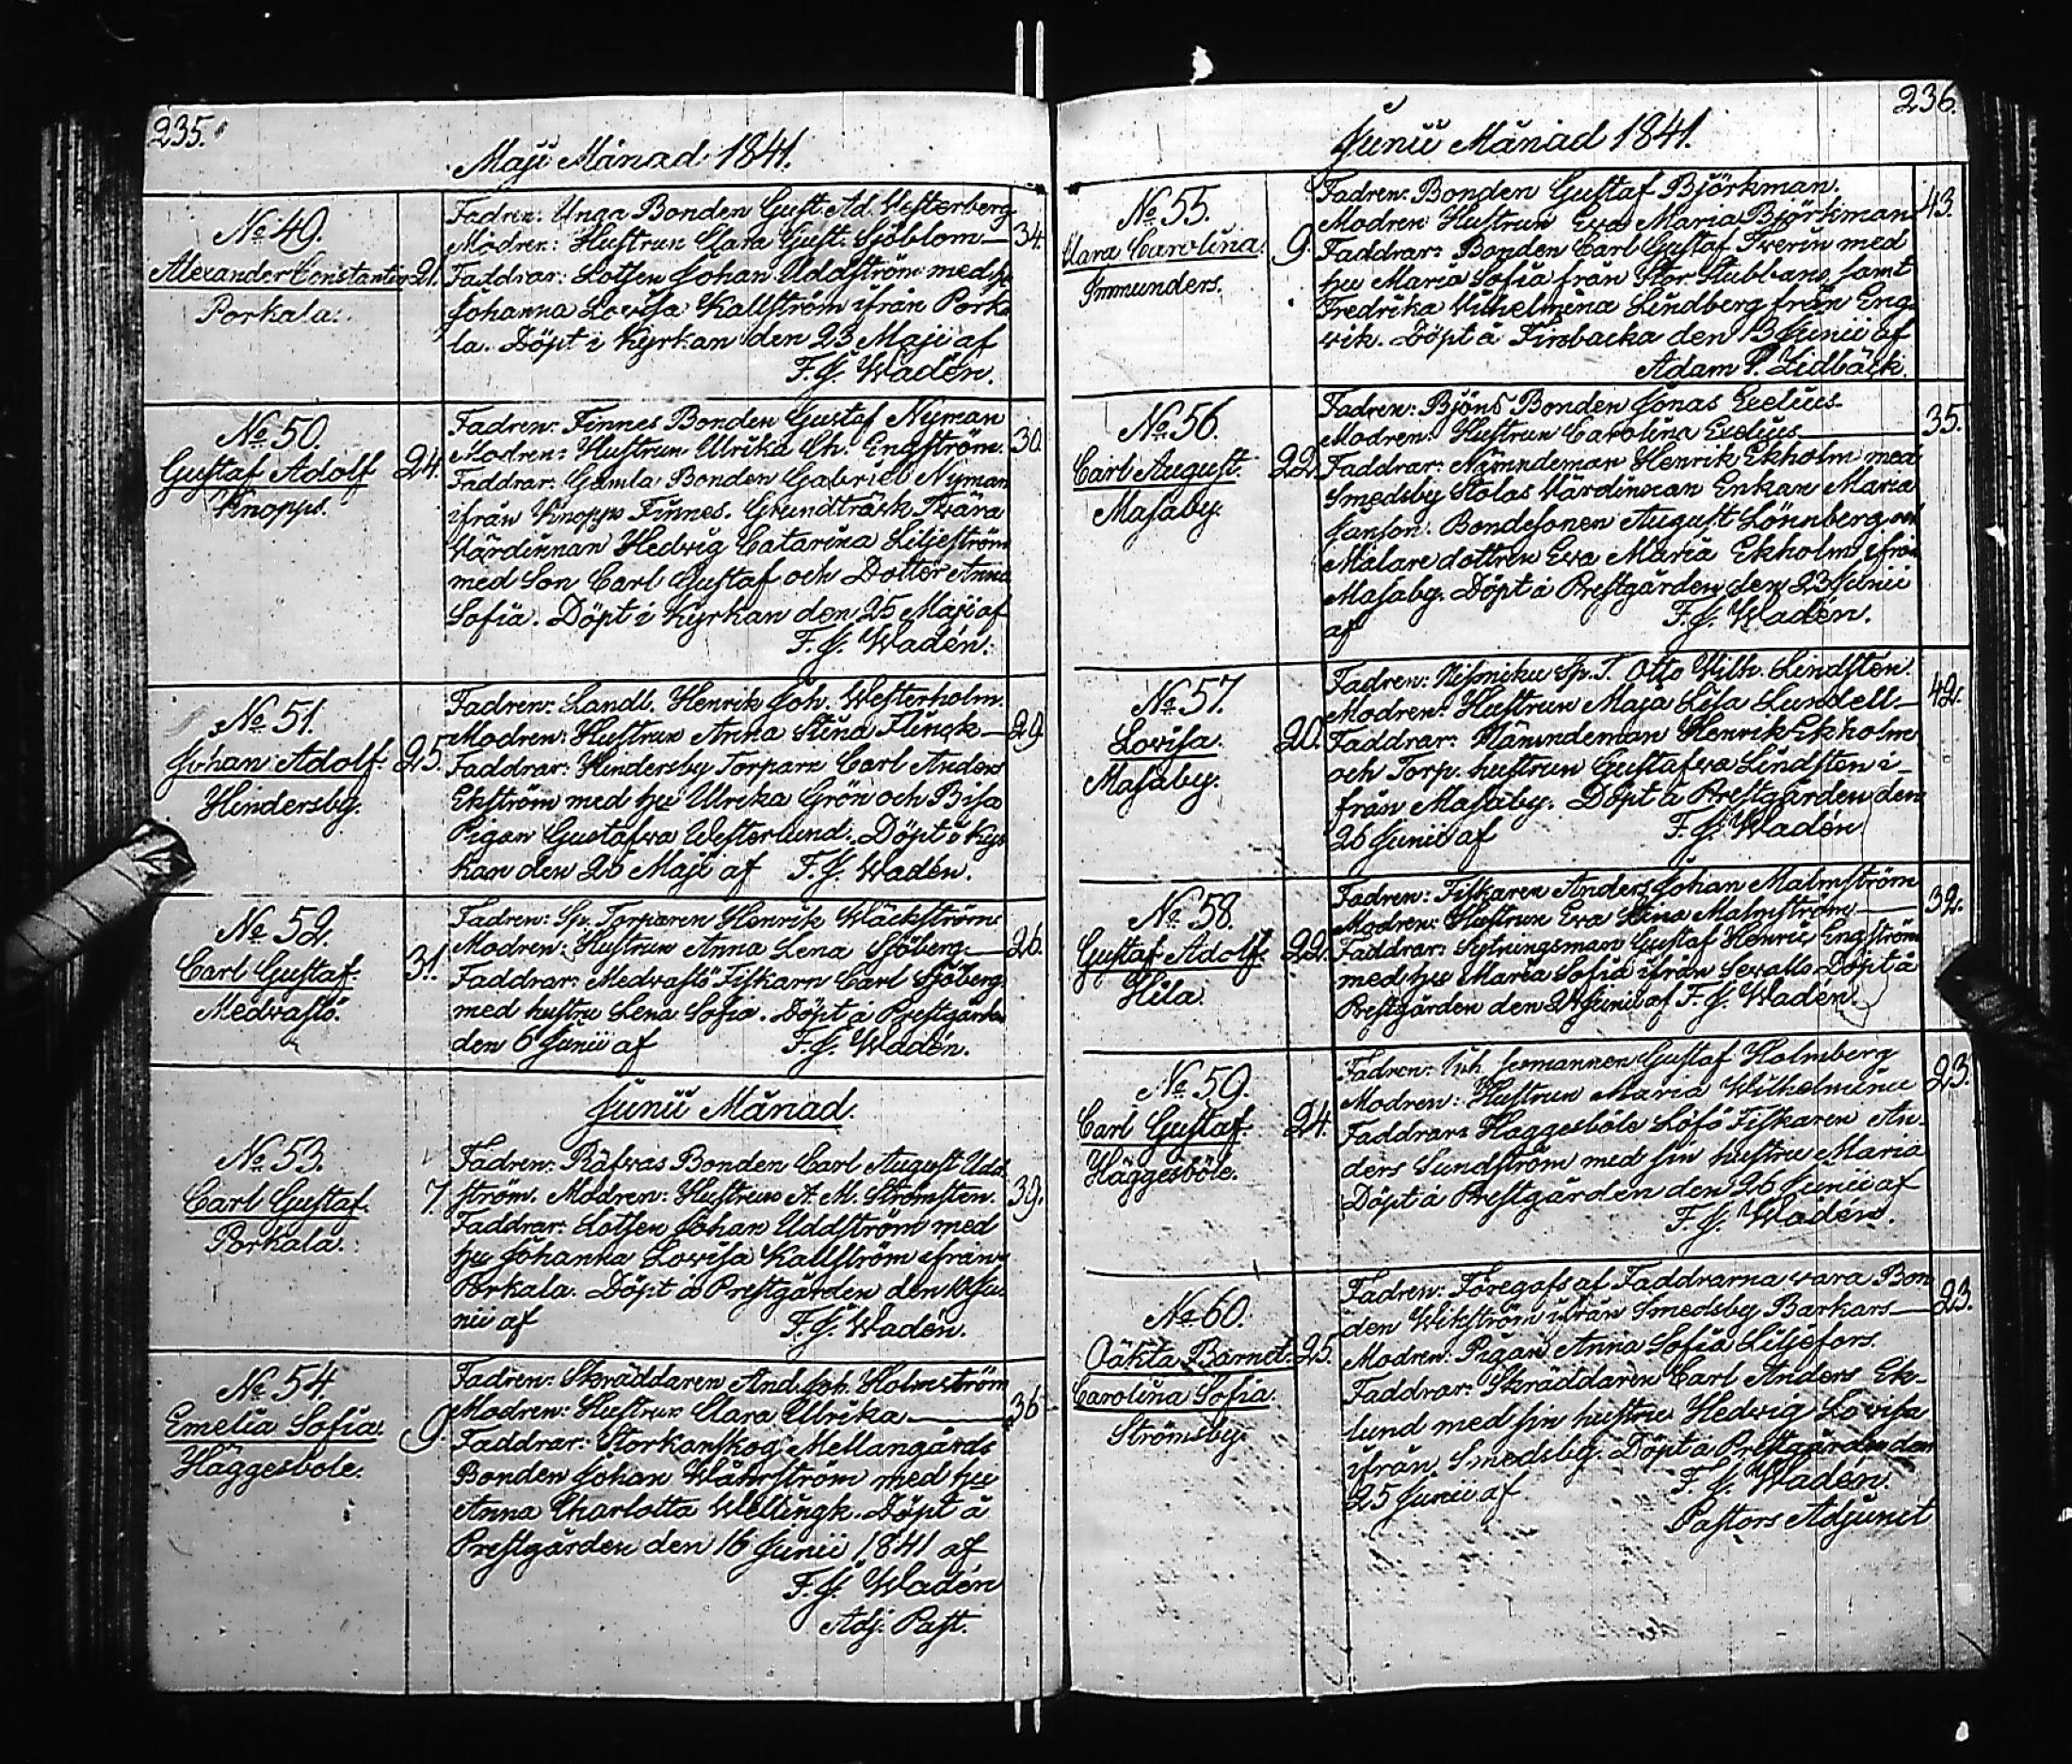 235.
Maji Månad 1841.
No 49.
Alexander Constantin
Porkala.
21.
Fadren: Unga Bonden Gust. Ad. Westerberg
Modren: Hustrun Clara Gust. Sjöblom
34.
Faddrar: Lotsen Johan Uddström med hu
Johanna Lovisa Kallström ifrån Porka
la. Döpt i Kyrkan den 23 Maji af
F. J. Wadén.
No 50.
Gustaf Adolf
Knopps.
24.
Fadren: Finnes Bonden Gustaf Nyman
Modren: Hustrun Ulrika Ch. Engström.
30.
Faddrar: Gamla Bonden Gabriel Nyman
ifrån Knopps Finnes. Grundträsk Tvära
Värdinnan Hedvig Catarina Liljeström
med Son Carl Gustaf och Dotter Anna
Sofia. Döpt i Kyrkan den 25 Maji af
F. J. Wadén.
No 51.
Johan Adolf.
Hindersby.
25.
Fadren: Landb. Henrik Joh. Westerholm.
Modren: Hustrun Anna Stina Flingk
29.
Faddrar: Hindersby Torparn Carl Anders
Ekström med hu Ulrika Grön och Bisa
Pigan Gustafva Westerlund. Döpt i Kyr
kan den 26 Maji af F. J. Wadén.
No 52.
Carl Gustaf.
Medvastö.
31.
Fadren: Sp. Torparen Henrik Wäckström
Modren: Hustrun Anna Lena Sjöberg
26.
Faddrar: Medvastö Fiskarn Carl Sjöberg
med hustru Lena Sofia. Döpt å Prestgården
den 6 Junii af F. J. Wadén.
Junii Månad.
No 53.
Carl Gustaf.
Porkala.
7.
Fadren: Räfvas Bonden Carl August Udd
ström. Modren: Hustrun A. M. Strömsten.
39.
Faddrar: Lotsen Johan Uddström med
hu Johanna Lovisa Kallström ifrån
Porkala. Döpt å Prestgården den Ju
nii af F. J. Wadén.
No 54.
Emelia Sofia.
Häggesbole.
9.
Fadren: Skräddaren And. Joh. Holmström
Modren: Hustrun Clara Ulrika
36
Faddrar: Storkanskog Mellangårds
Bonden Johan med hu
Anna Charlotta Wellingk. Döpt å
Prestgården den 16 Junii 1841 af
F. J. Wadén
Adj. Past.
236.
Junii Månad 1841.
No 55.
Clara Carolina.
Immunders.
9.
Fadren: Bonden Gustaf Björkman.
Modren Hustrun Eva Maria Björkman
43.
Faddrar: Bonden Carl Gustaf Iverin med
hu Maria Sofia från Stor Stubbans, samt
Fredrika Vilhelmina Lindberg från Eng-
vik. Döpt å Finbacka den 13 Junii af
Adam P. Lidbäck.
No 56.
Carl August.
Masaby.
22.
Fadren: Bjöns Bonden Jonas Exelius
Modren: Hustrun Carolina Exelius
35.
Faddrar: Nämndeman Henrik Ekholm med
Smedsby Stolas Värdinnan Enkan Maria
Janson. Bondesonen August Lönnberg
Målare dottren Eva Maria Ekholm ifrån
Masaby. Döpt å Prestgården den 23 Junii
af F. J. Wadén.
No 57.
Lovisa.
Masaby.
20.
Fadren: Nissniku Sp. T. Otto Wilh. Lindsten.
Modren: Hustrun Maja Lisa Lundell
42.
Faddrar: Nämndeman Henrik Ekholm
och Torp. hustrun Gustafva Lindsten i-
från Masaby. Döpt å Prestgården den
26 Junii af F. J. Wadén
No 58.
Gustaf Adolf.
Hila.
22.
Fadren: Fiskaren Anders Johan Malmström
Modren: Hustrun Eva Stina Malmström
32.
Faddrar: Sytningsman Gustaf Henric Engström
med hu Maria Sofia ifrån Sevalls Döpt å
Prestgården den 24 Junii af F. J. Wadén.
No 59.
Carl Gustaf.
Häggesböle.
24.
Fadren: Inh. Gustaf Holmberg
Modren: Hustrun Maria Wilhelmina
23.
Faddrar: Häggesböle Löfö Fiskaren An-
ders Sundström med sin hustru Maria
Döpt å Prestgården den 26 Junii af
F. J. Wadén.
No 60.
Oäkta Barnet.
Carolina Sofia.
Strömsby.
25.
Fadren: Föregafs af Faddrarna vara Bon
den Wikström ifrån Smedsby Barkars
23.
Modren: Pigan Anna Sofia Liljefors.
Faddrar: Skräddaren Carl Anders Ek-
lund med sin hustru Hedvig Lovisa
ifrån Smedsby. Döpt å Prestgården den
25 Junii af F. J. Wadén.
Pastors Adjunct